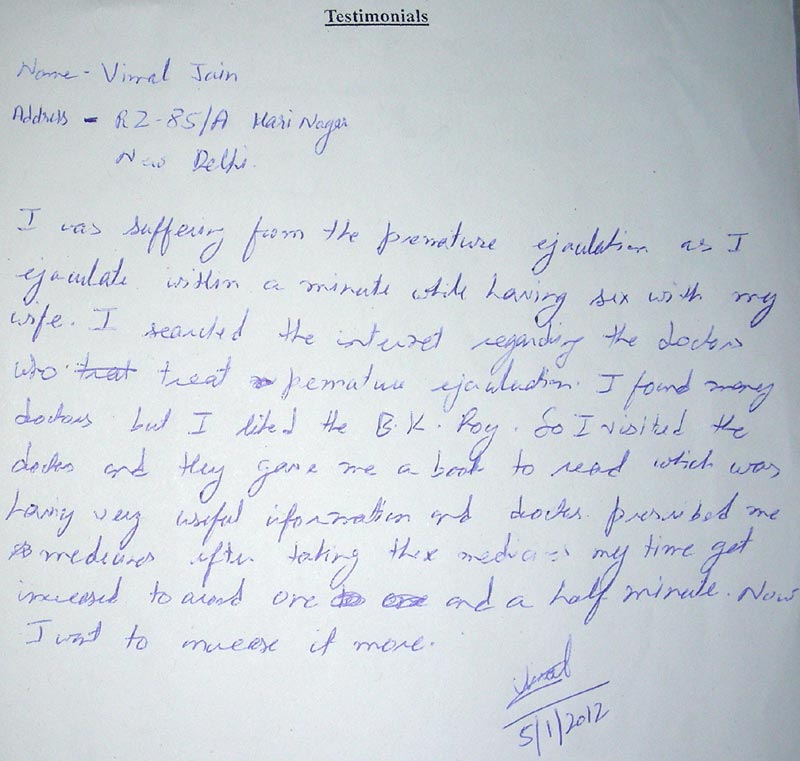 Testimonials
Name - Vimal Jain
Address - RZ-85/A Hari Nagar
New Delhi.
I was suffering from the premature ejaculation as I
ejaculate within a minute while having sex with my
wife. I searched the internet regarding the doctors
who treat treat premature ejaculation. I found many
doctors but I liked the B.K. Roy. So I visited the
doctor and they gave me a book to read which was
having very useful information and doctor prescribed me
medicines after taking these medicines my time get
increased to around one and a half minute. Now
I want to increase it more.
Vimal
5/1/2012